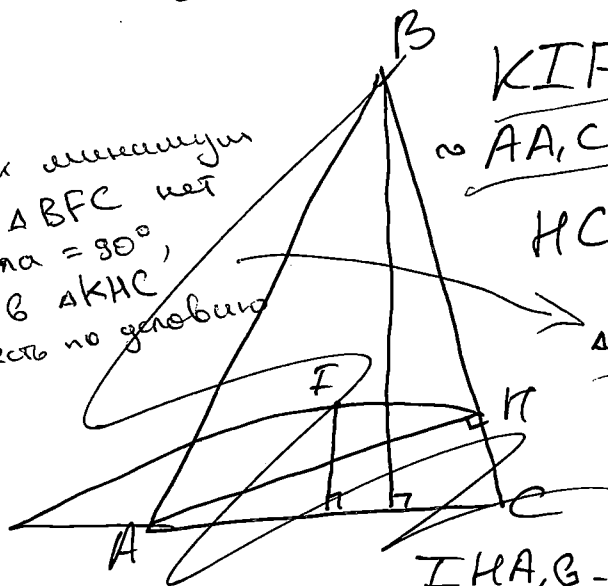 B
KIF
~ AA₁C
HC
к минимум
△BFC нет
ла = 90°,
в △KHC
есть по условию
△
I
H
A
C
IHA₁B -